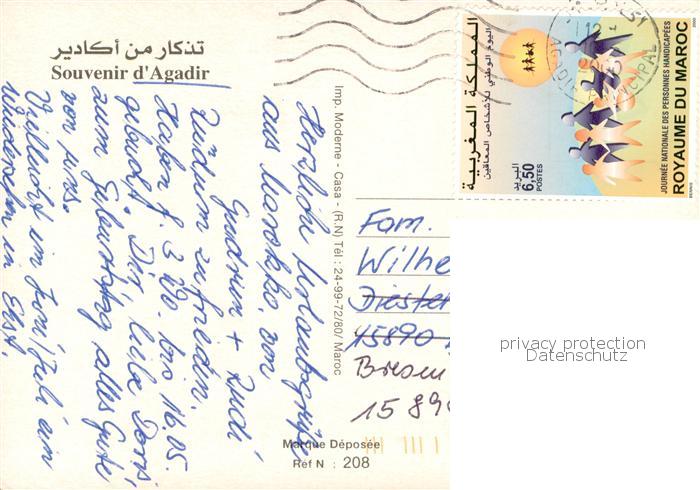 تذكار من أكادير
Souvenir d'Agadir
Herzliche Urlaubsgrüße
aus Marokko, von
Gudrun + Rudi
zufrieden.
Haben f. 3 20. bis 16.05.
gebucht. Dir, liebe Doris,
zum Geburtstag alles Gute
von uns.
Vielleicht im Juni/Juli ein
Wiedersehn in Ehst.
Imp. Moderne - Casa - (R.N) Tél : 24-99-72/80/ Maroc
Fam.
Wilhe
Diester
15890
Bresin
15 890
Marque Déposée
Réf N : 208
المملكة المغربية
اليوم الوطني للأشخاص المعاقين
البريد
6,50
POSTES
JOURNÉE NATIONALE DES PERSONNES HANDICAPÉES
ROYAUME DU MAROC
2000
privacy protection
Datenschutz